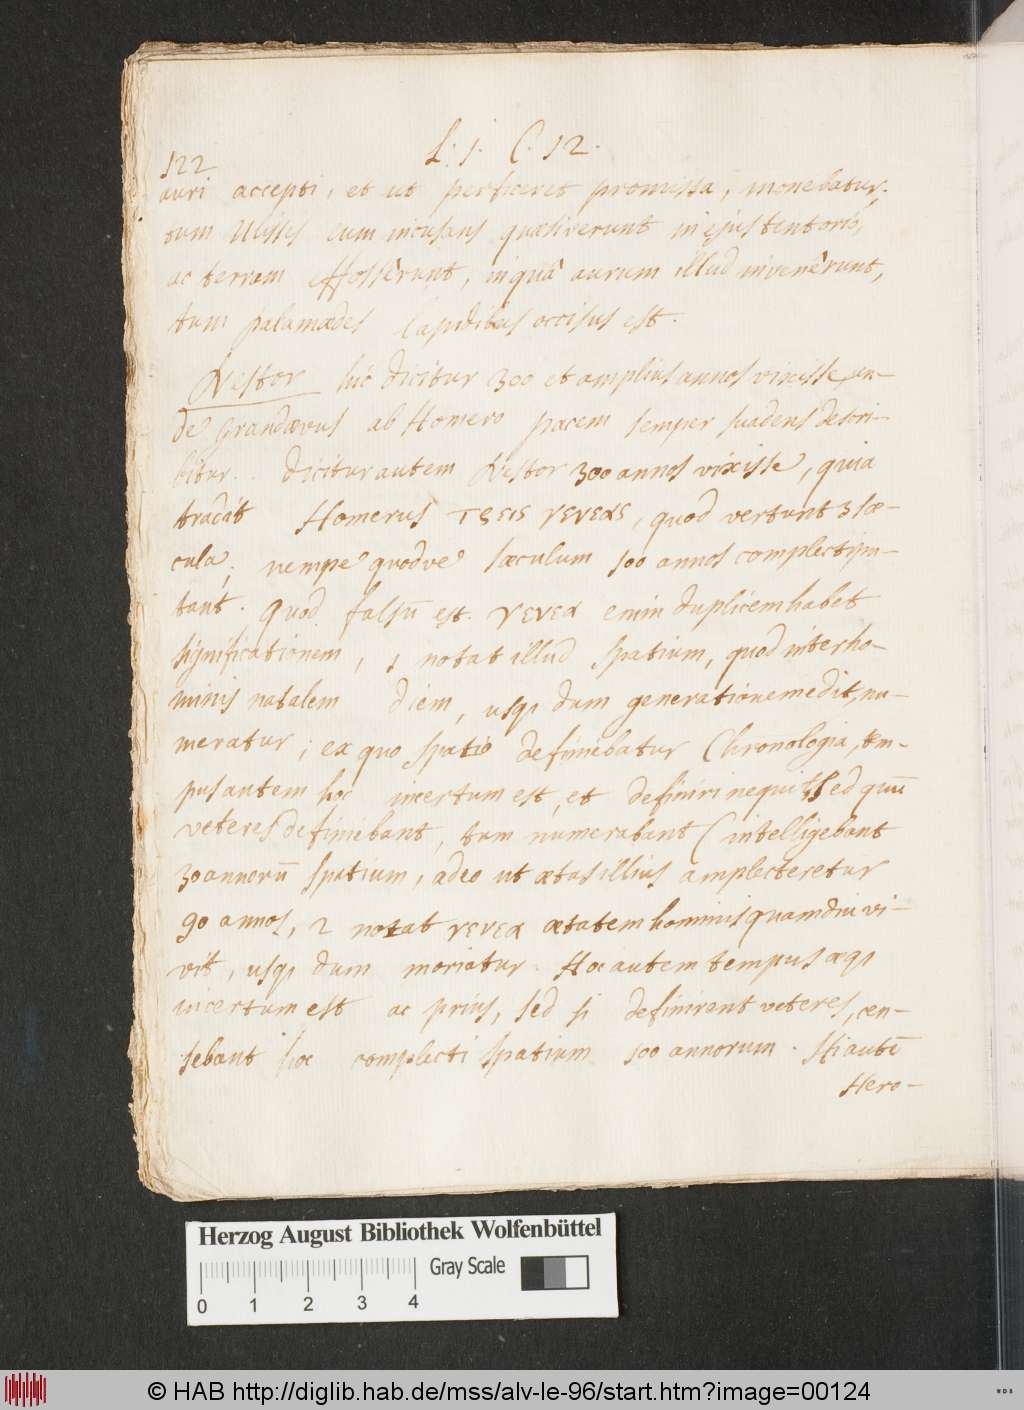 122
L: 1. C. 12.
auri accepti, et ut perficeret promissa, monebatur.
tum Ulisses eum incusans quæsiverunt in ejus tentoriô,
ac terram effossêrunt, in quâ aurum illud invenêrunt,
tum palamædes lapidibus occisus est.
Nestor hic dicitur 300 et amplius annos vixisse, un-
de grandævus ab Homero pacem semper suadens descri-
bitur. dicitur autem Nestor 300 annos vixisse, quia
tradit Homerus τρεις γενεας, quod vertunt 3 sæ-
cula, nempe quodve sæculum 100 annos complectun-
tant. quod falsū est. γενεα enim duplicem habet
significationem, 1 notat illud spatium, quod inter ho-
minis natalem diem, usq dum generationem edit, nu-
meratur; ex quo spatio definiebatur Chronologia, tem-
pus autem hoc incertum est, et definiri nequit, sed quū
veteres definiebant, tum numerabant (intelligebant
30 annorū spatium, adeo ut ætas illius amplecteretur
90 annos, 2 notat γενεα ætatem hominis quamdiu vi-
vit, usq dum moriatur. Hoc autem tempus æq
incertum est ac prius, sed si definirent veteres, cen-
sebant hoc complecti spatium 100 annorum. Hi autē
Hero-
Herzog August Bibliothek Wolfenbüttel
Gray Scale
0 1 2 3 4
© HAB http://diglib.hab.de/mss/alv-le-96/start.htm?image=00124